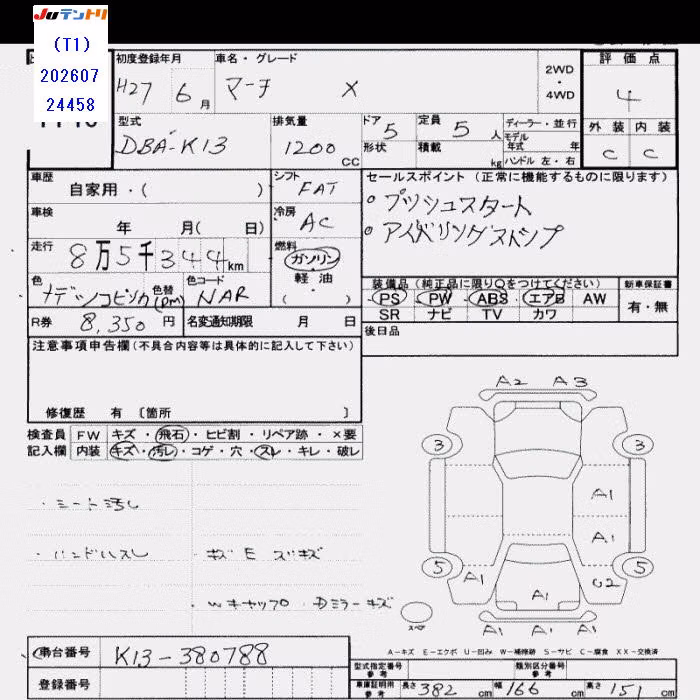 JUテントリ
(T1)
202607
24458
初度登録年月 車名・グレード 2WD ・ 4WD 評価点
H27 6月 マーチ X 4
型式 排気量 ドア 定員 ディーラー・並行 外装 内装
DBA-K13 1200cc 5 5人 モデル年式 年 C C
形状 積載 kg ハンドル 左・右
車歴 シフト セールスポイント(正常に機能するものに限ります)
自家用・( ) FAT ・プッシュスタート
車検 冷房
年 月( 日) AC ・アイドリングストップ
走行 燃料
8万5千344km ガソリン
色 色替 色コード 軽油
ナデシコピンク(PM) NAR ( )
装備品(純正品に限り○をつけてください) 新車保証書
PS・PW・ABS・エアB AW 有・無
SR ナビ TV カワ
R券 8,350円 名変通知期限 月 日
後日品
注意事項申告欄(不具合内容等は具体的に記入して下さい)
修復歴 有〔箇所 〕
検査員 FW キズ・飛石・ヒビ割・リペア跡・×要
記入欄 内装 キズ・汚レ・コゲ・穴・スレ・キレ・破レ
・シート汚レ
・ハンドルスレ ・キズ E スリキズ
・Wキャップ ・Dミラーキズ
A2 A3
3 3
A1
A1
5 5
A1 A1 U2
スペア A1 A1 A1
A-キズ E-エクボ U-凹み W-補修跡 S-サビ C-腐食 XX-交換済
車台番号 K13-380788
登録番号
型式指定番号 参考 類別区分番号 参考
車庫証明用 参考 長さ 382cm 幅 166cm 高さ 151cm